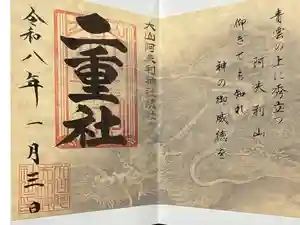 青雲の上に秀立つ
阿夫利山
仰ぎても知れ
神の御威徳を
大山阿夫利神社摂社
二重社
令和八年一月三日